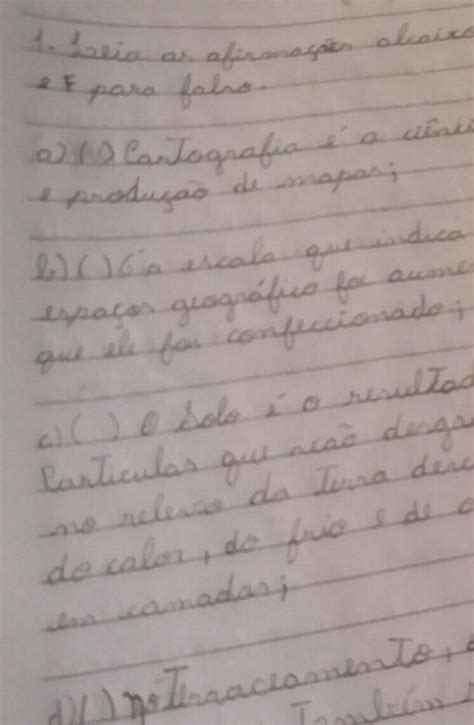 1. Leia as afirmações abaixo
e F para falso.
a) ( ) Cartografia é a ciênci
e produção de mapas;
b) ( ) É a escala que indica
espaços geográfico foi aume
que ele foi confeccionado;
c) ( ) O Solo é o resultad
Particulas que
no relevo da Terra
do calor, do frio e de
em camadas;
d) ( ) no Terraceamento,
Também